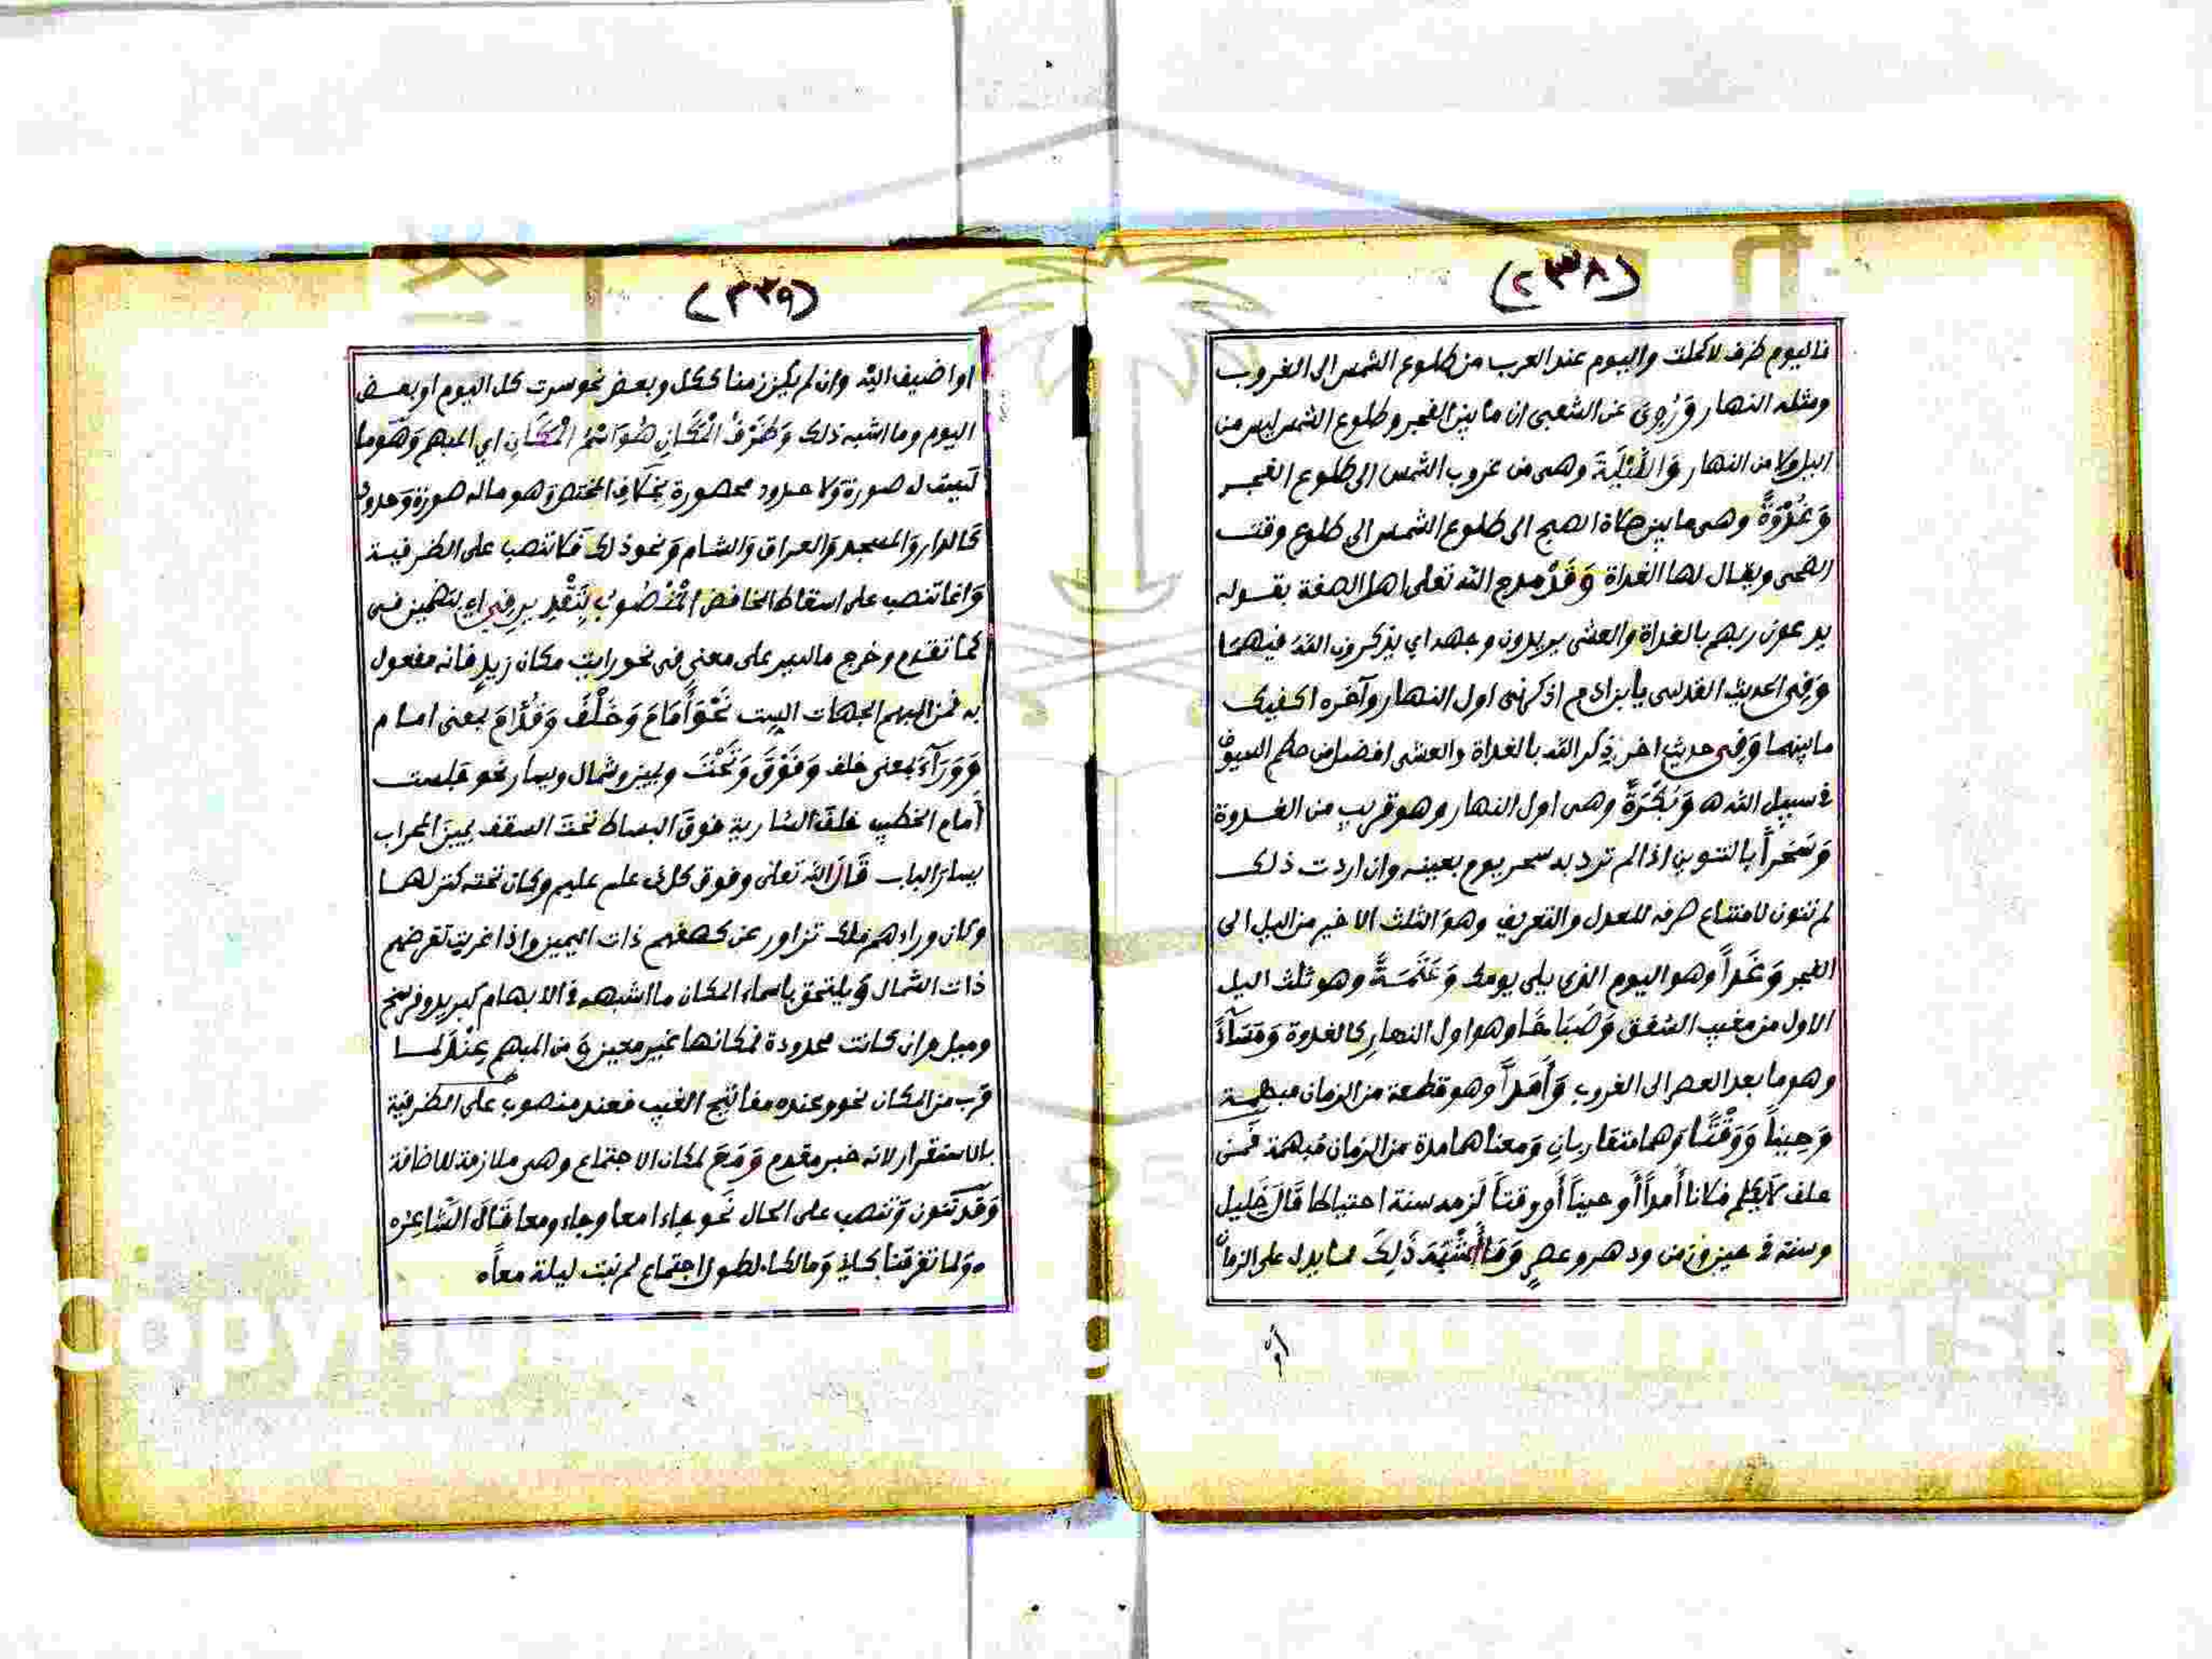 (٢٣٨)
فاليوم ظرف لاكملت واليوم عند العرب من طلوع الشمس الى الغروب
ومثله النهار وَرُوِىَ عن الشعبى ان ما بين الفجر وطلوع الشمس ليس من
اليل ولا من النهار وَاللَّيْلَةَ وهى من غروب الشمس الى طلوع الفجر
وَغُدْوَةً وهى ما بين صلاة الصبح الى طلوع الشمس الى طلوع وقت
الضحى ويقال لها الغداة وَقَدْ مدح الله تعلى اهل الصفة بقوله
يدعون ربهم بالغداة والعشى يريدون وجهه اي يذكرون الله فيهما
وَفِى الحديث القدسى يا بن ادم اذكرنى اول النهار وآخره اكفيك
ما بينهما وَفِى حديث اخر ذكر الله بالغداة والعشى افضل من حطم السيوف
فى سبيل الله ه وَبُكْرَةً وهى اول النهار وهو قريب من الغدوة
وَسَحَراً بالتنوين اذا لم ترد به سحر يوم بعينه وان اردت ذلك
لم تنون لامتناع صرفه للعدل والتعريف وهو الثلث الاخير من اليل الى
الفجر وَغَداً وهو اليوم الذى يلى يومك وَعَتَمَةً وهو ثلث اليل
الاول من مغيب الشفق وَصَبَاحًا وهو اول النهار كالغدوة وَمَسَآءً
وهو ما بعد العصر الى الغروب وَأَمَداً وهو قطعة من الزمان مبهمة
وَحِيناً وَوَقْتًا وَهما متقاربان وَمعناهما مدة من الزمان مُبهمة فَمن
حلف لا يكلم فلانا أمداً أو حيناً أو وقتاً لزمه سنة احتياطا قَالَ خليل
وسنة فى حين وزمن ودهر وعصرٍ وَمَا أَشْبَهَ ذَلِكَ مما يدل على الزمان
أو
(٢٣٩)
او اضيف اليه وان لم يكن زمنا ككل وبعض نحو سرت كل اليوم او بعض
اليوم وما اشبه ذلك وَظَرْفُ الْمَكَانِ هُوَ اسْمُ الْمَكَانِ اي المبهم وَهُوَ ما
ليست له صورة وَلا حدود محصورة بِخلاف المختص وَهو ماله صورة وَحدود
كَالدار وَالمسجد وَالعراق وَالشام وَنحو ذلك فَلا تنصب على الظرفية
وَانما تنصب على اسقاط الخافض الْمَنْصُوبُ بِتَقْدِيرِ فِي اي بتضمين فى
كما تقدم وخرج ما ليس على معنى فى نحو رايت مكان زيدٍ فانه مفعول
به فمن المبهم الجهات الست نَحْوَ أَمَامَ وَخَلْفَ وَقُدَّامَ بمعنى امام
وَوَرَآءَ بمعنى خلف وَفَوْقَ وَتَحْتَ ويمين وشمال ويسار نحو جلست
أمام الخطيب خلفَ السّارية فوقَ البساط تحتَ السقف يمينَ المحراب
يسارَ الباب قَالَ الله تعلى وفوق كل ذى علم عليم وكان تحته كنز لهما
وكان وراءهم ملك تزاور عن كهفهم ذات اليمين واذا غربت تقرضهم
ذات الشمال وَيلتحق باسماء المكان ما اشبهه فى الابهام كبريد وفرسخ
وميل وان كانت محدودة فمكانها غير معين وَمن المبهم عِنْدَ لما
قرب من المكان نحو وعنده مفاتح الغيب فعند منصوب على الظرفية
بالاستقرار لانه خبر مقدم وَمَعَ لمكان الاجتماع وهى ملازمة للاضافة
وَقد تنون وَتنصب على الحال نَحو جاءا معا وجاءوا معا قَالَ الشّاعِرُ ه
ه وَلما تفرقنا كأني وَمالكا ه لطول اجتماع لم نبت ليلة معاً ه